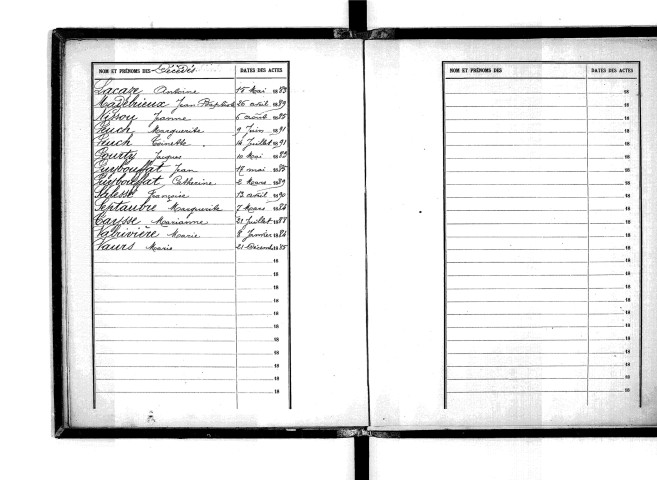 NOM ET PRÉNOMS DES Décédés DATES DES ACTES
Lacaze Antoine 15 Mai 1889
Madebrieux Jean Baptiste 26 avril 1889
Nissou Jeanne 6 août 1885
Peuch Marguerite 9 Juin 1891
Peuch Toinette 14 Juillet 1891
Pourty Jacques 10 Mai 1885
Puybouffat Jean 17 mai 1885
Puybouffat Catherine 2 Mars 1889
Salesse Françoise 12 avril 1890
Septaubre Marguerite 7 Mars 1886
Taysse Marianne 21 Juillet 1888
Valrivière Marie 8 Janvier 1886
Vaurs Marie 21 Décemb 1885
18
18
18
18
18
18
18
18
18
18
18
NOM ET PRÉNOMS DES DATES DES ACTES
18
18
18
18
18
18
18
18
18
18
18
18
18
18
18
18
18
18
18
18
18
18
18
18